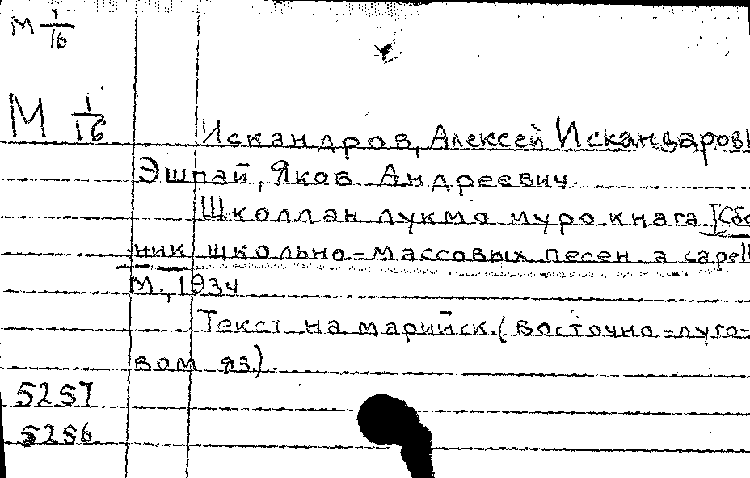 М 1/16
М 1/16
Искандров, Алексей Искандаров
Эшпай, Яков Андреевич
Школлан лукмо муро книга [Сбо
ник школьно-массовых песен a capell
М., 1934
Текст на марийск. (восточно-луго-
вом яз.)
5257
5256